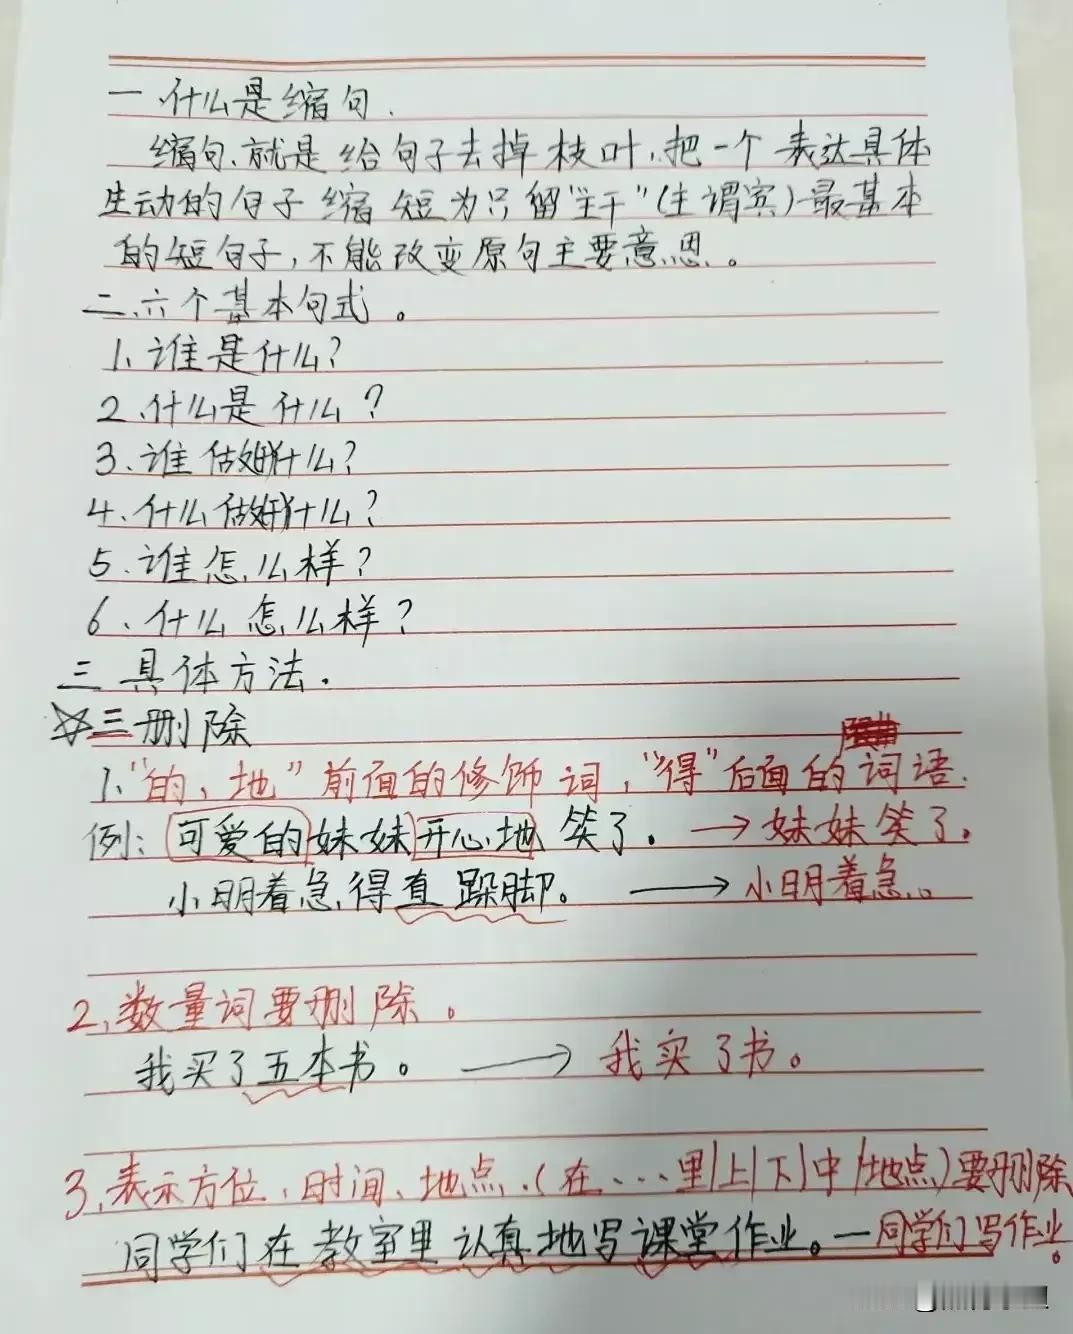 一、什么是缩句.
缩句、就是给句子去掉枝叶,把一个表达具体
生动的句子缩短为只留"主干"(主谓宾)最基本
的短句子,不能改变原句主要意思。
二、六个基本句式。
1、谁是什么?
2、什么是什么?
3、谁做什么?
4、什么做什么?
5、谁怎么样?
6、什么怎么样?
三 具体方法.
☆三删除
1、"的、地"前面的修饰词,"得"后面的词语.
例:可爱的妹妹开心地笑了。→妹妹笑了。
小明着急得直跺脚。→小明着急。
2、数量词要删除。
我买了五本书。→我买了书。
3、表示方位、时间、地点、(在...里|上|下|中|地点)要删除
同学们在教室里认真地写课堂作业。—同学们写作业。